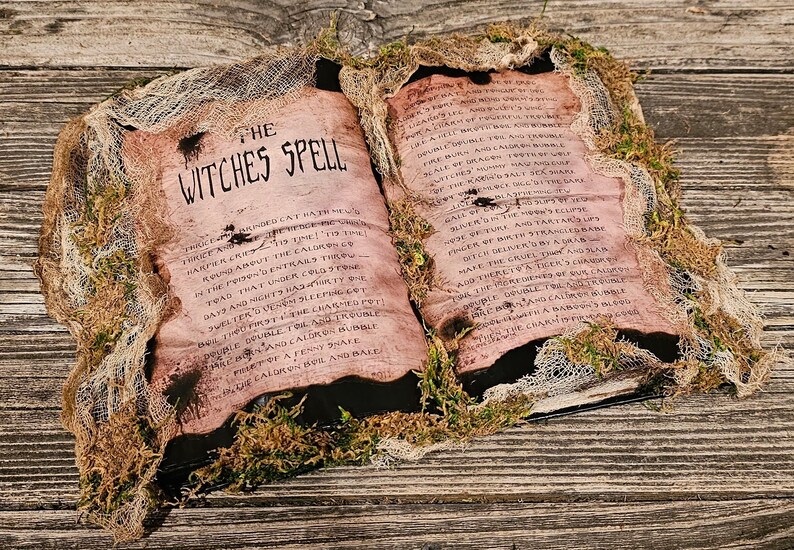 THE
WITCHES SPELL
THRICE THE BRINDED CAT HATH MEW'D
THRICE AND ONCE THE HEDGE-PIG WHIN'D
HARPIER CRIES 'TIS TIME! 'TIS TIME!
ROUND ABOUT THE CALDRON GO
IN THE POISON'D ENTRAILS THROW
TOAD THAT UNDER COLD STONE
DAYS AND NIGHTS HAS THIRTY ONE
SWELTER'D VENOM SLEEPING GOT
BOIL THOU FIRST I' THE CHARMED POT!
DOUBLE DOUBLE TOIL AND TROUBLE
FIRE BURN AND CALDRON BUBBLE
FILLET OF A FENNY SNAKE
IN THE CALDRON BOIL AND BAKE
OF FROG
WOOL OF BAT AND TONGUE OF DOG
FORK AND BLIND WORM'S STING
LIZARD'S LEG AND OWLET'S WING
FOR A CHARM OF POWERFUL TROUBLE
LIKE A HELL BROTH BOIL AND BUBBLE
DOUBLE DOUBLE TOIL AND TROUBLE
FIRE BURN AND CALDRON BUBBLE
SCALE OF DRAGON TOOTH OF WOLF
WITCHES' MUMMY MAW AND GULF
OF THE RAVIN'D SALT SEA SHARK
ROOT OF HEMLOCK DIGG'D I THE DARK
LIVER OF BLASPHEMING JEW
GALL OF GOAT AND SLIPS OF YEW
SLIVER'D IN THE MOON'S ECLIPSE
NOSE OF TURK AND TARTAR'S LIPS
FINGER OF BIRTH STRANGLED BABE
DITCH DELIVER'D BY A DRAB
MAKE THE GRUEL THICK AND SLAB
ADD THERETO A TIGER'S CHAUDRON
FOR THE INGREDIENTS OF OUR CALDRON
DOUBLE DOUBLE TOIL AND TROUBLE
FIRE BURN AND CALDRON BUBBLE
COOL IT WITH A BABOON'S BLOOD
THEN THE CHARM IS FIRM AND GOOD